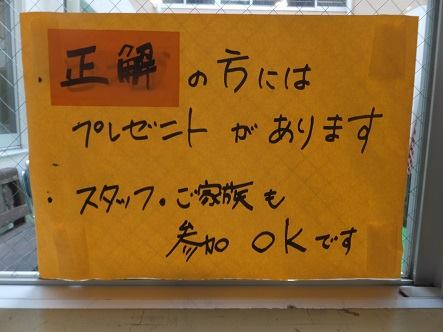 正解の方には
プレゼントがあります
・スタッフ・ご家族も
参加OKです